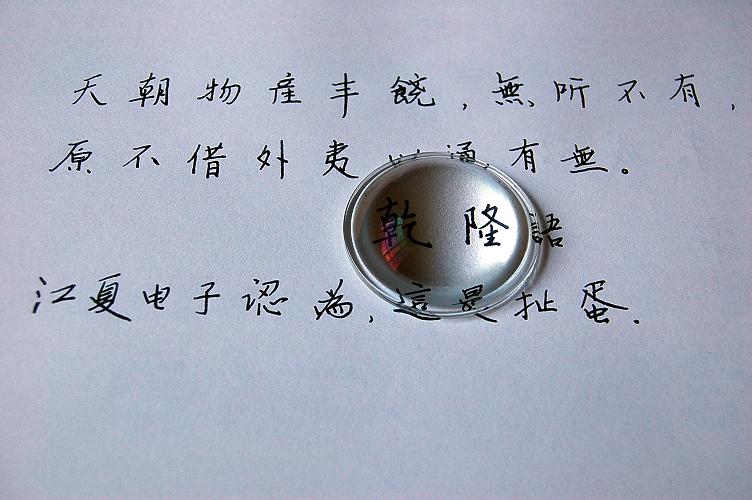 天朝物産丰饒，無所不有，
原不借外夷以通有無。
乾隆語
江夏电子認為，這是扯蛋.